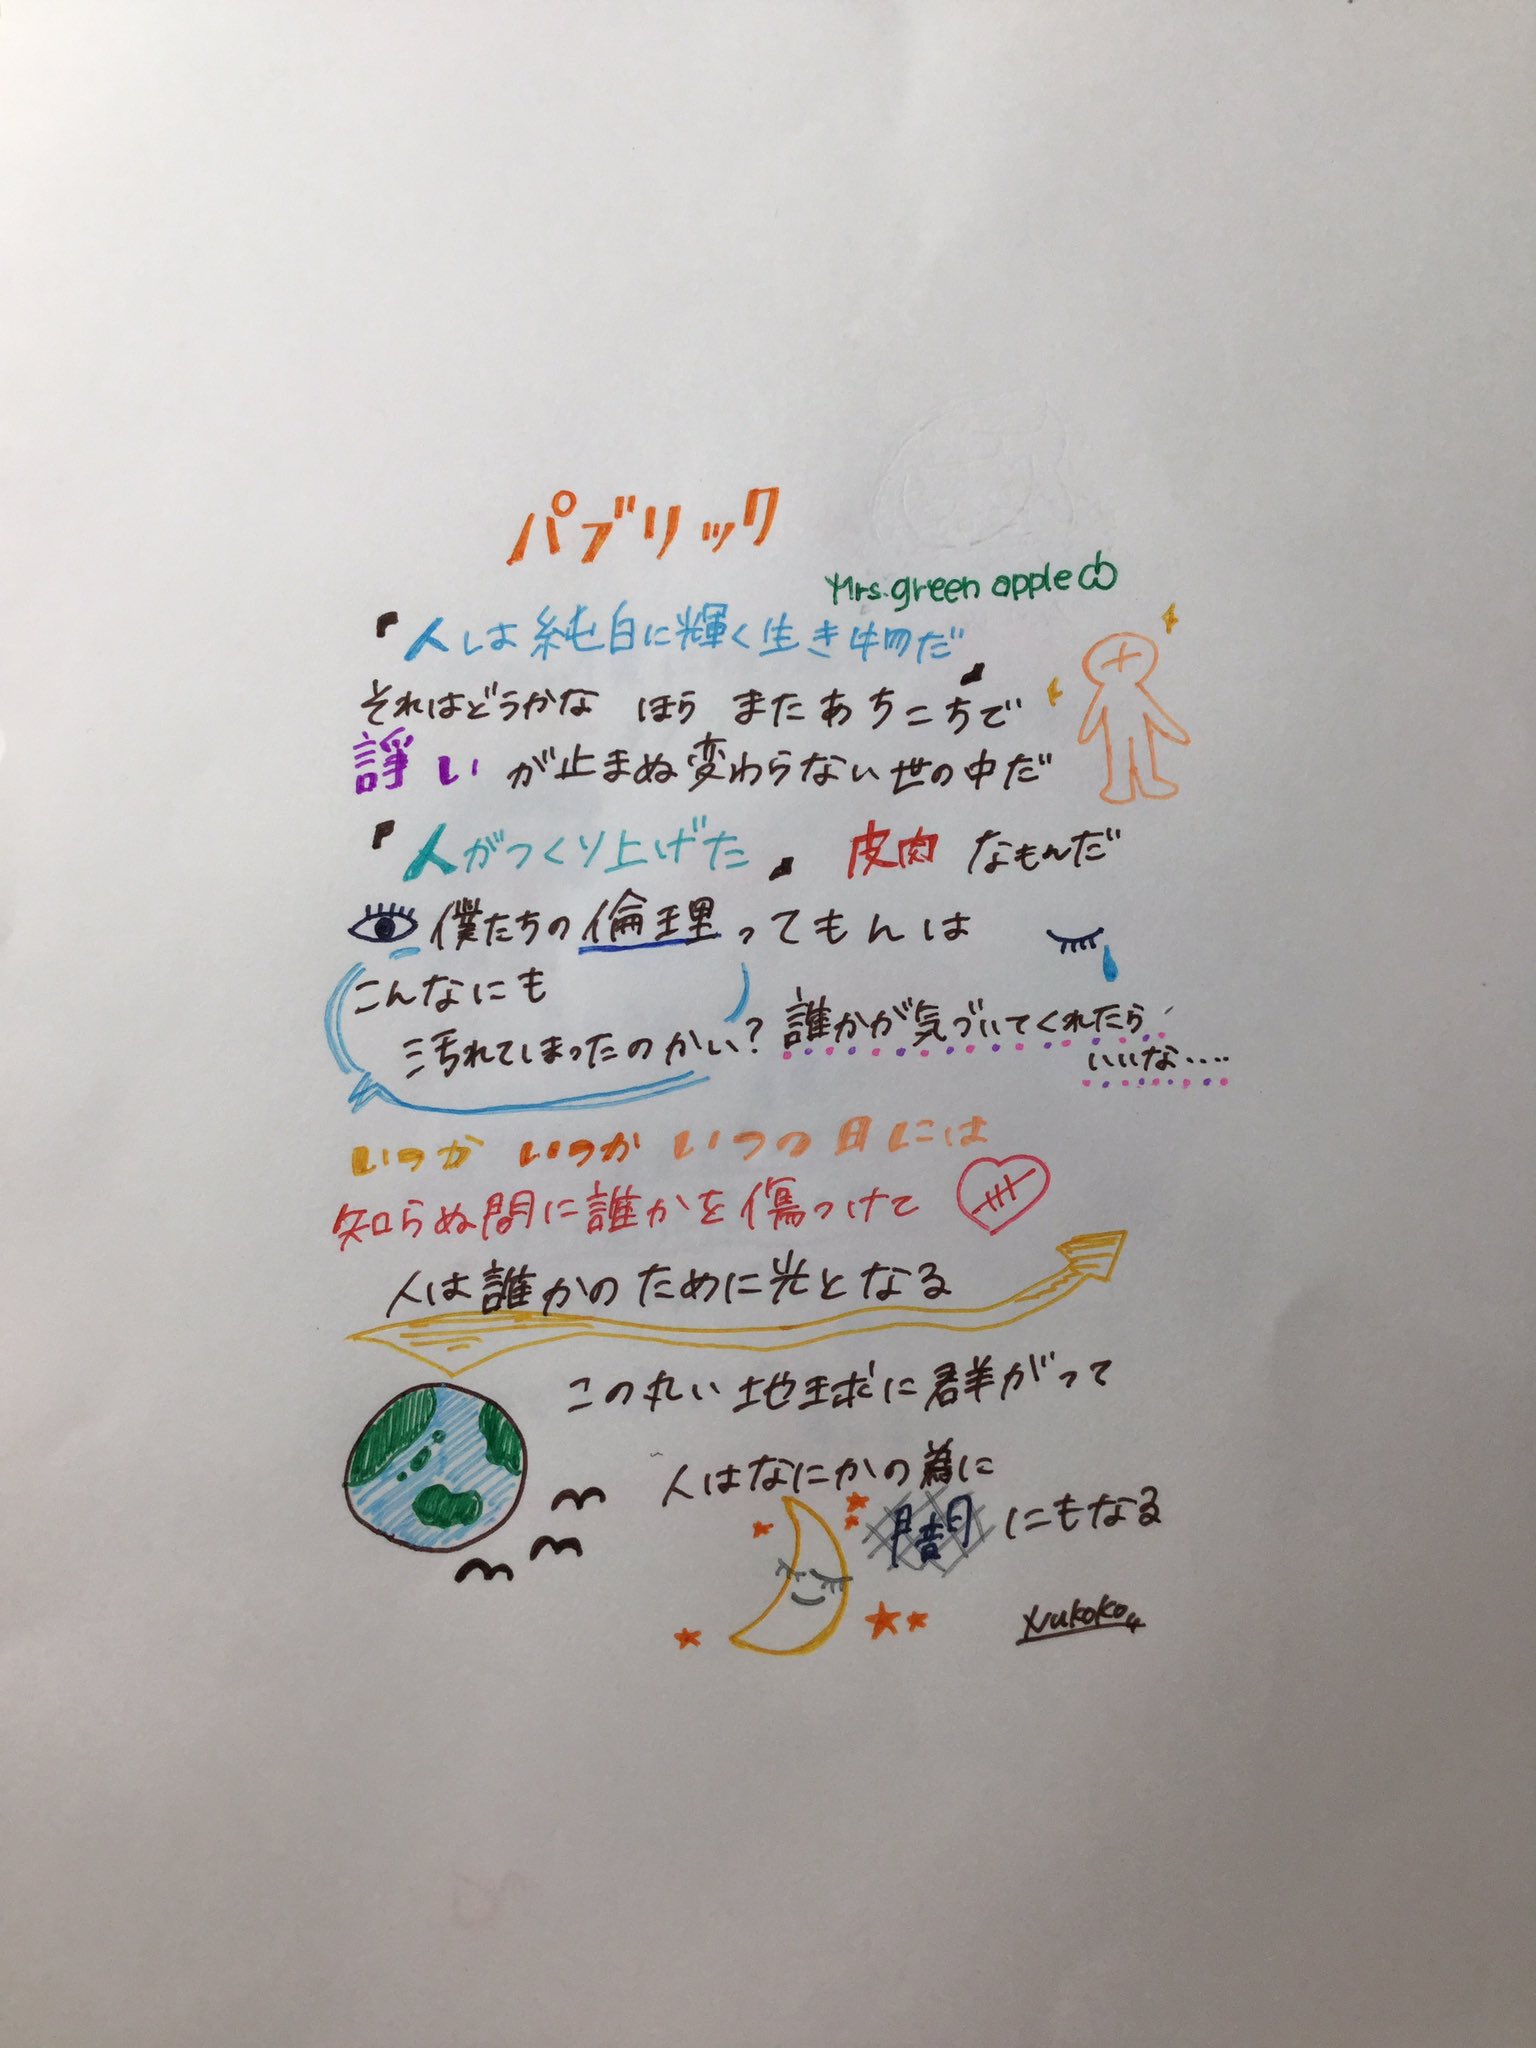 パブリック
Mrs. green apple
「人は純白に輝く生き物だ」
それはどうかな ほら またあちこちで
諍いが止まぬ変わらない世の中だ
「人がつくり上げた」 皮肉なもんだ
僕たちの倫理ってもんは
こんなにも
汚れてしまったのかい? 誰かが気づいてくれたら
いいな‥‥
いつか いつか いつの日には
知らぬ間に誰かを傷つけて
人は誰かのために光となる
この丸い地球に群がって
人はなにかの為に
闇にもなる